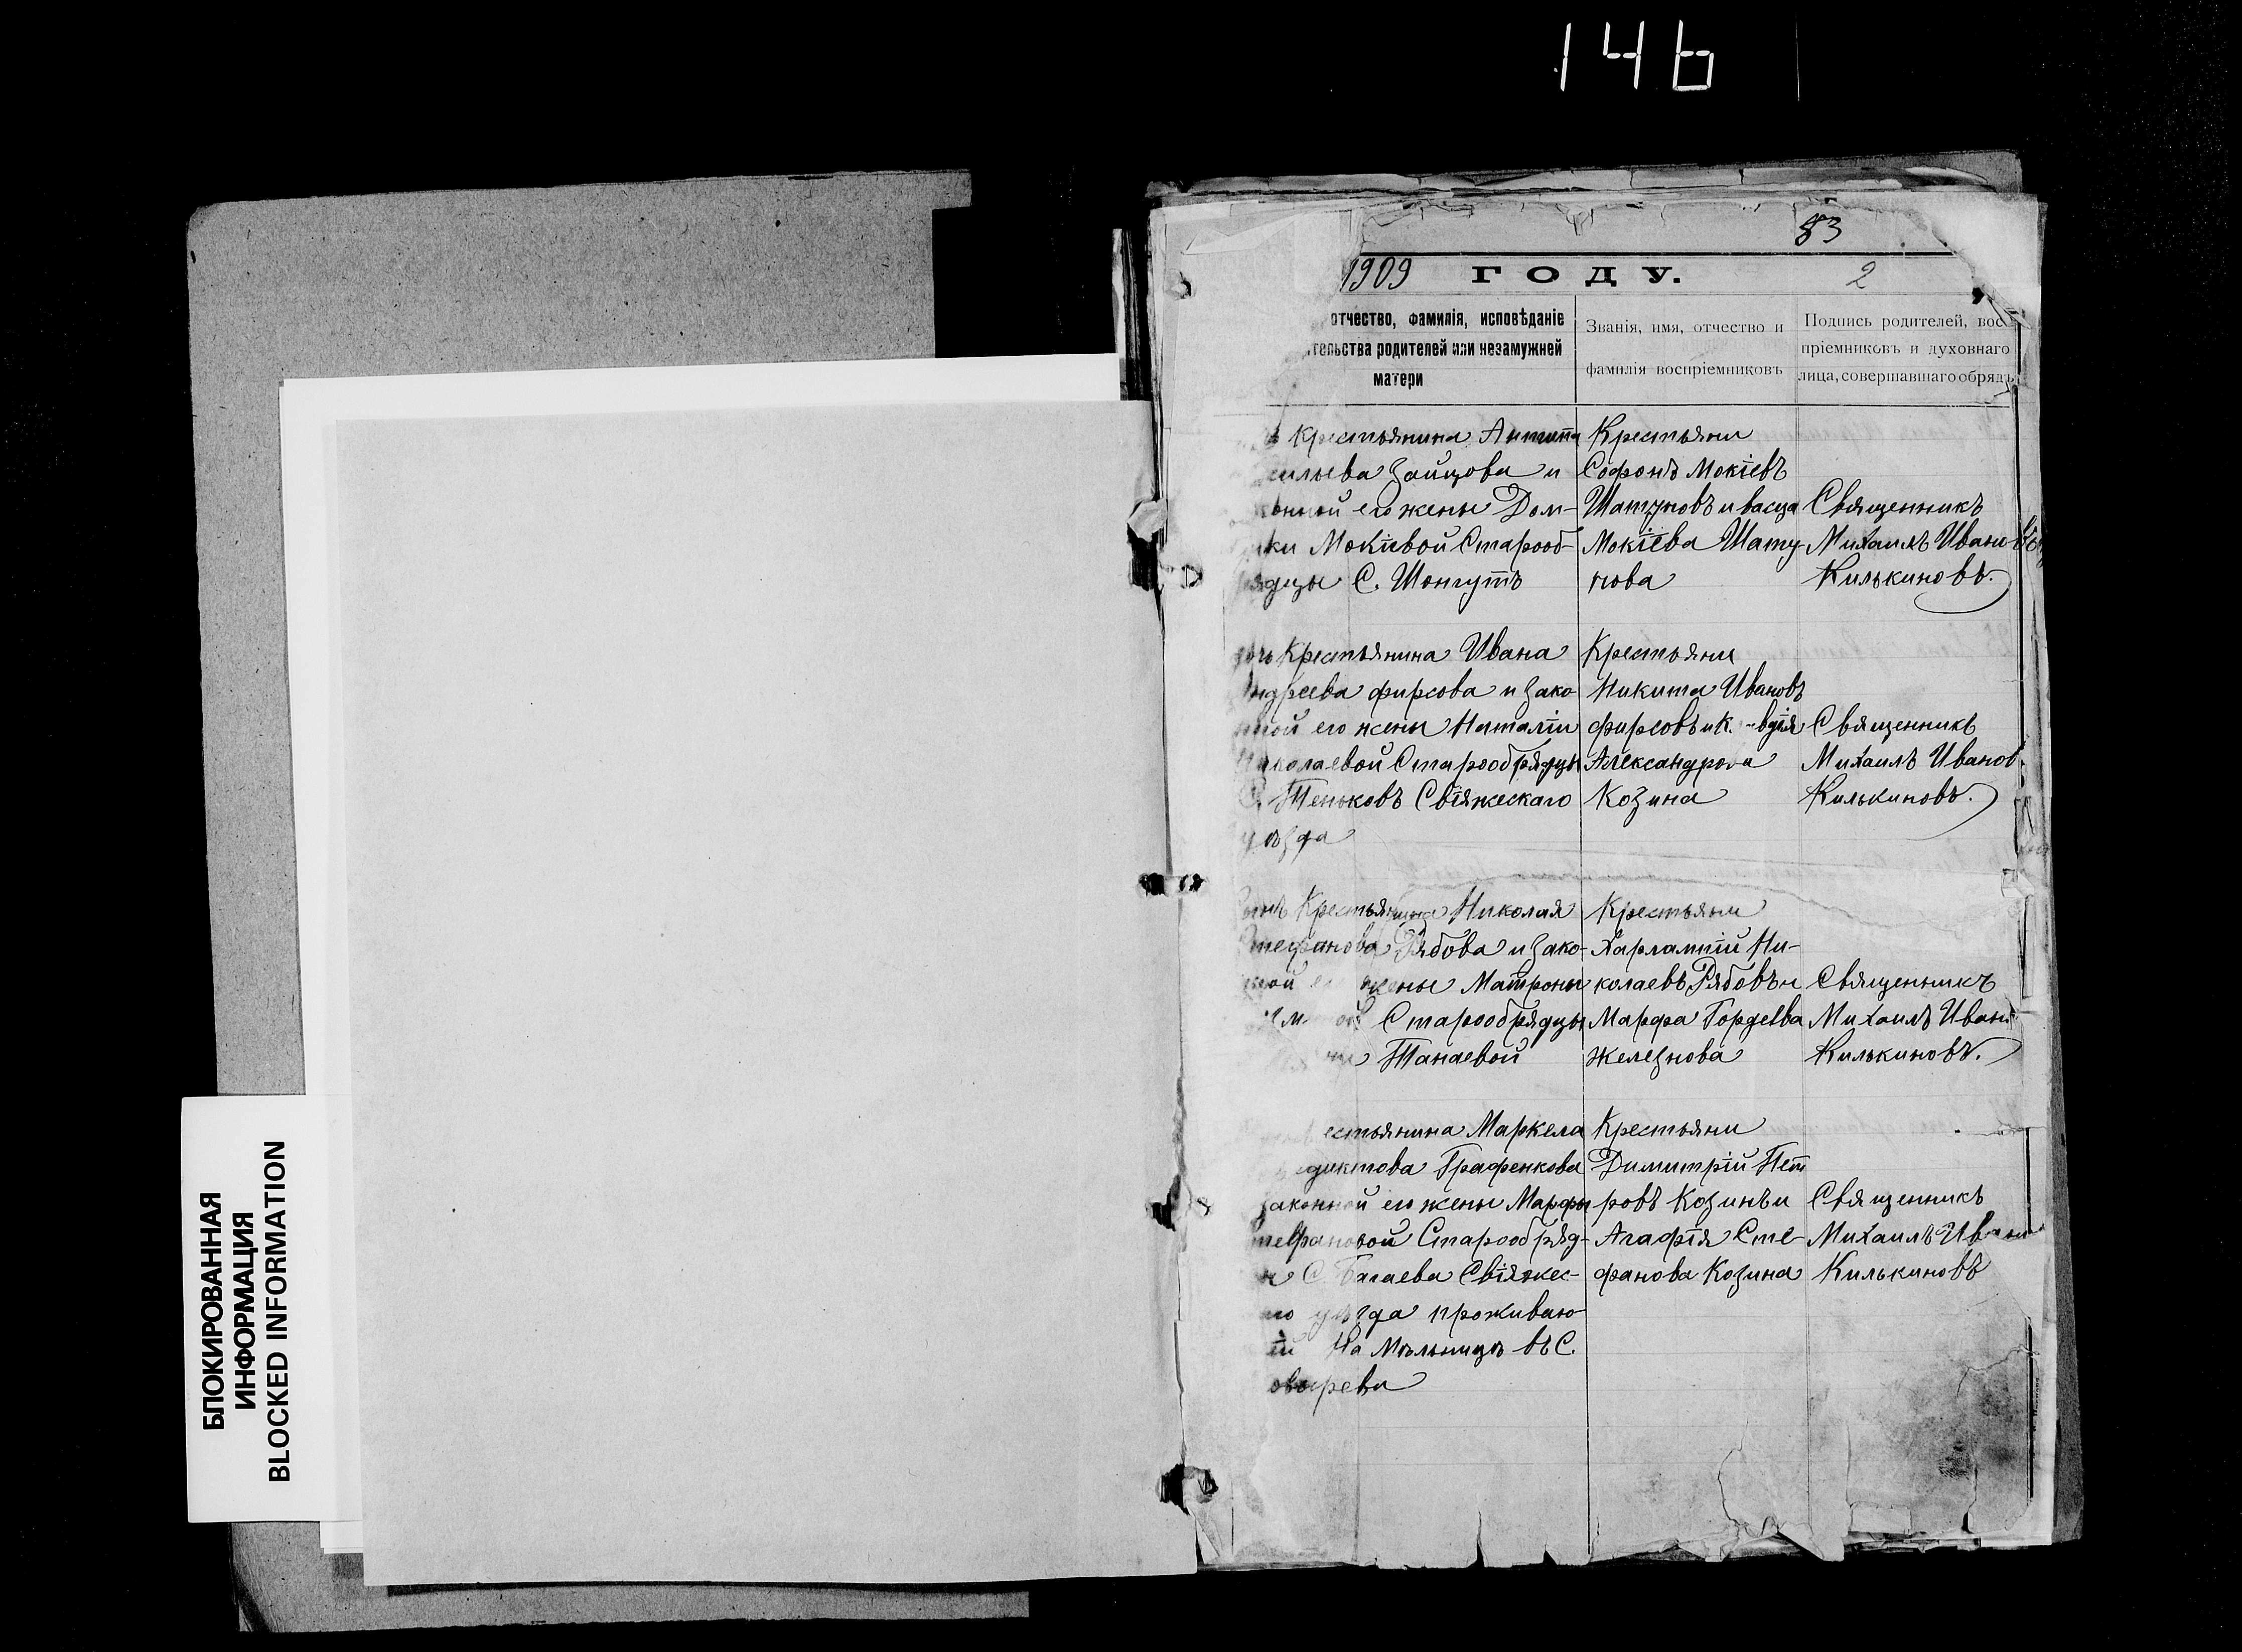 146
БЛОКИРОВАННАЯ
ИНФОРМАЦИЯ
BLOCKED INFORMATION
83
1909 ГОДУ. 2
отчество, фамилія, исповѣданіе
тельства родителей или незамужней
матери
Званія, имя, отчество и
фамилія воспріемниковъ
Подпись родителей, вос-
пріемниковъ и духовнаго
лица, совершавшаго обрядъ
Крестьянина Антипа
сильева Зайцова и
онной его жены Дом-
ки Мокіевой Старооб-
рядцы С. Шонгутъ
Крестьяни
Софонъ Мокіевъ
Шатуновъ и
Мокіева Шату-
нова
Священникъ
Михаилъ Иванов
Килькиновъ.
Крестьянина Ивана
Андреева фирсова и зако-
нной его жены Наталіи
Николаевой Старообрядцы
С. Теньковъ Свіяжескаго
уѣзда
Крестьяни
Никита Ивановъ
фирсовъ и К. вдія
Александрова
Козина
Священникъ
Михаилъ Иванов
Килькиновъ.
Сынъ Крестьянина Николая
Стефанова Рябова и Зако-
ной его жены Матроны
Старообрядцы
Танаевой
Крестьяни
Харлампій Ни-
колаевъ Рябовъ и
Марфа Гордеева
Железнова
Священникъ
Михаилъ Ивано
Килькиновъ.
естьянина Маркела
едиктова Графенкова
Законной его жены Марфы
тефановой Старообряд-
С. Багаева Свіяжес-
го уѣзда проживаю-
ій На Мѣльницѣ въ С.
Крестьяни
Димитрій Пет
ровъ Козинъ и
Агафія Сте-
фанова Козина
Священникъ
Михаилъ Иванов
Килькиновъ